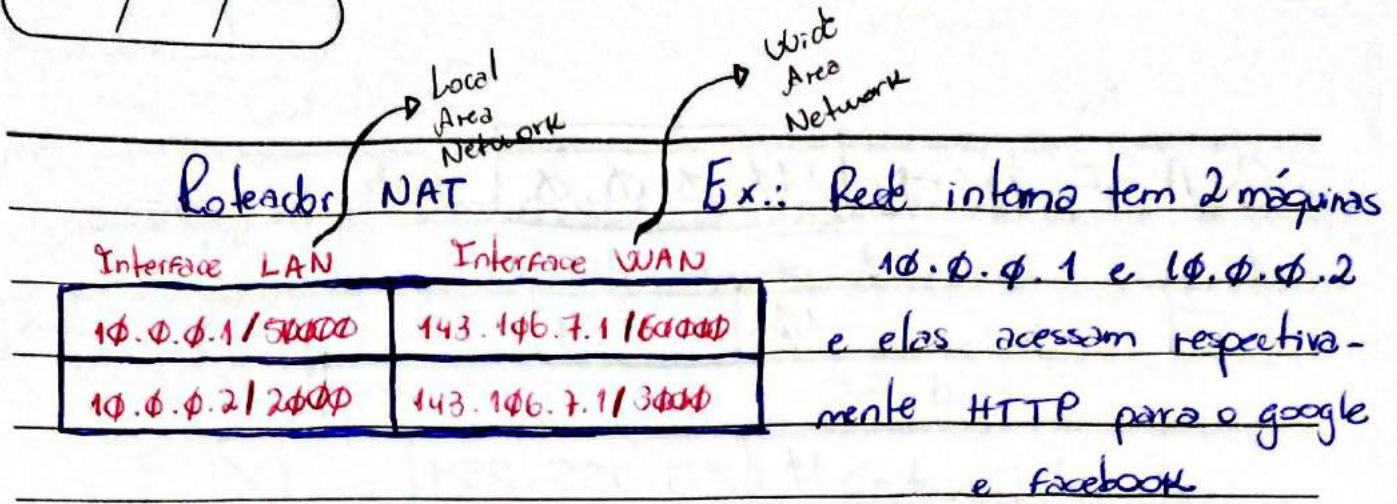 Local
Area
Network
Wide
Area
Network
Roteador NAT
Interface LAN Interface WAN
10.0.0.1/50000 143.106.7.1/60000
10.0.0.2/2000 143.106.7.1/3000
Ex.: Rede interna tem 2 máquinas
10.0.0.1 e 10.0.0.2
e elas acessam respectiva-
mente HTTP para o google
e facebook